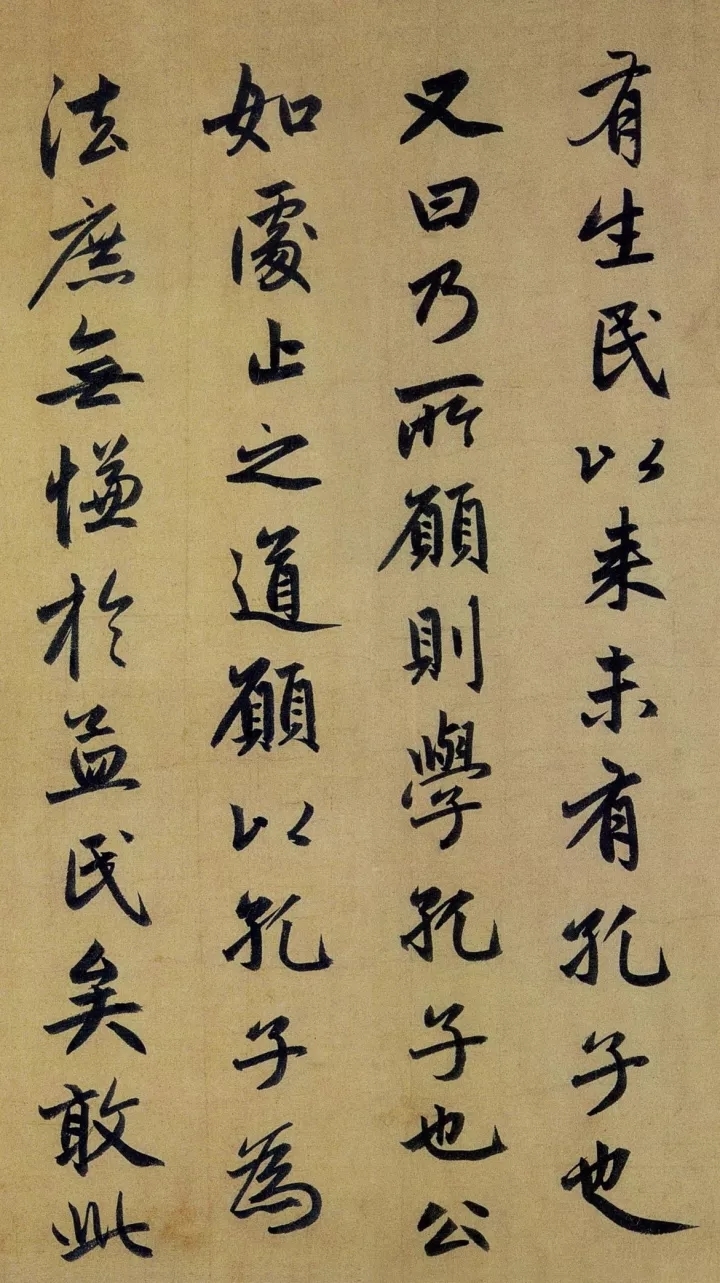 有生民以来未有孔子也
又曰乃所願則學孔子也公
如處止之道願以孔子為
法庶無慊於益民矣敢此